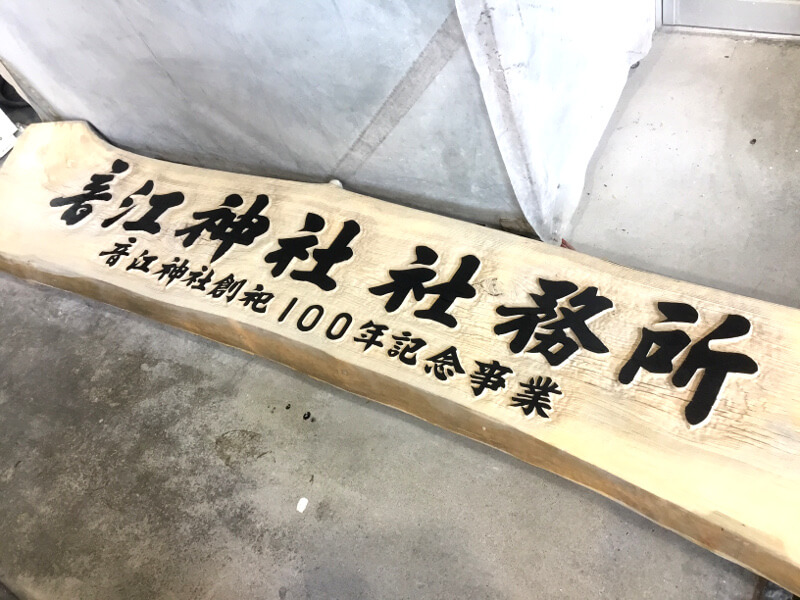 音江神社 社務所
音江神社創祀100年記念事業